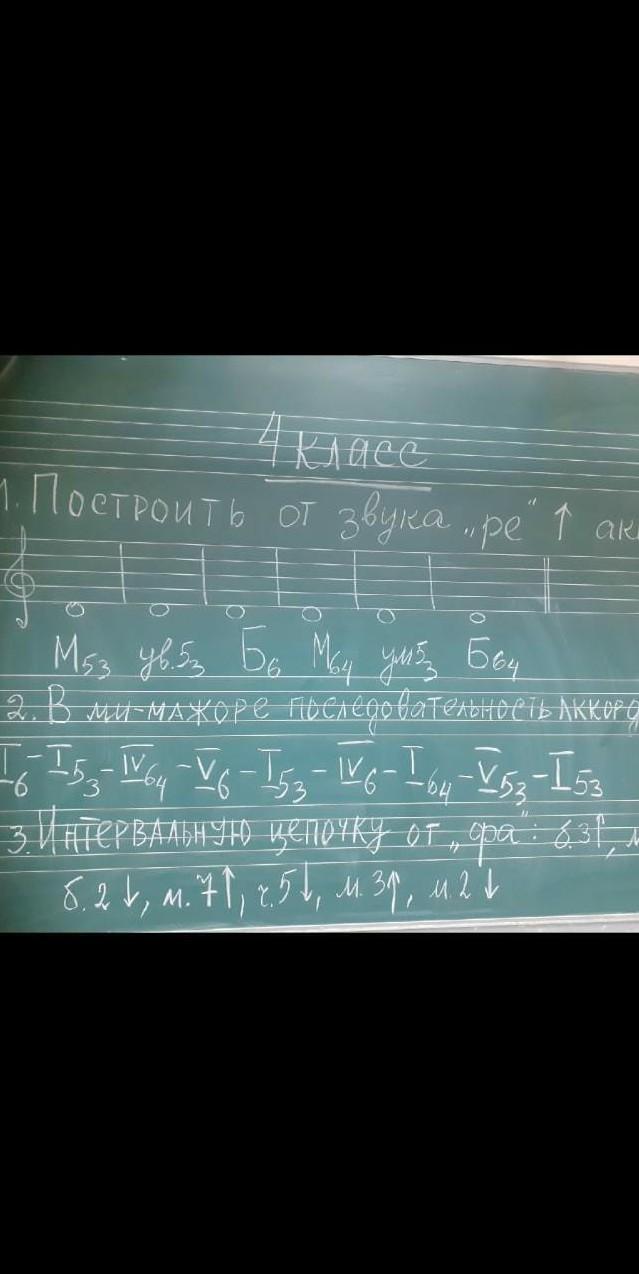 4 класс
1. Построить от звука „ре“ ↑ ак
М53 ув.53 Б6 М64 ум53 Б64
2. В ми-мажоре последовательность аккорд
I6 - I53 - IV64 - V6 - I53 - IV6 - I64 - V53 - I53
3. Интервальную цепочку от „фа“: б.3↑, м
б.2↓, м.7↑, ч.5↓, м.3↑, м.2↓